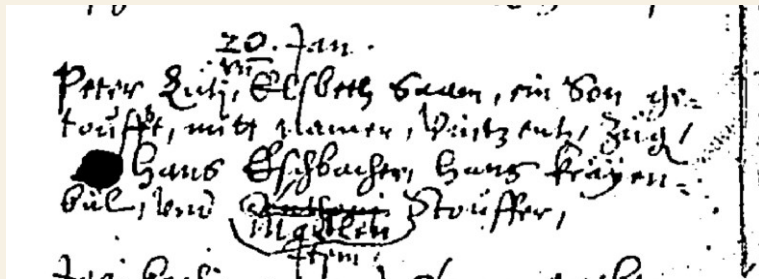 20. Jan.
vn
Peter Lutj, Elsbeth Saam, ein Son ge=
toufft, mitt namen, Vintzentz, Züg,
Hans Eschbacher, Hans kräÿen=
bül, vnd Stouffer,
Madlen